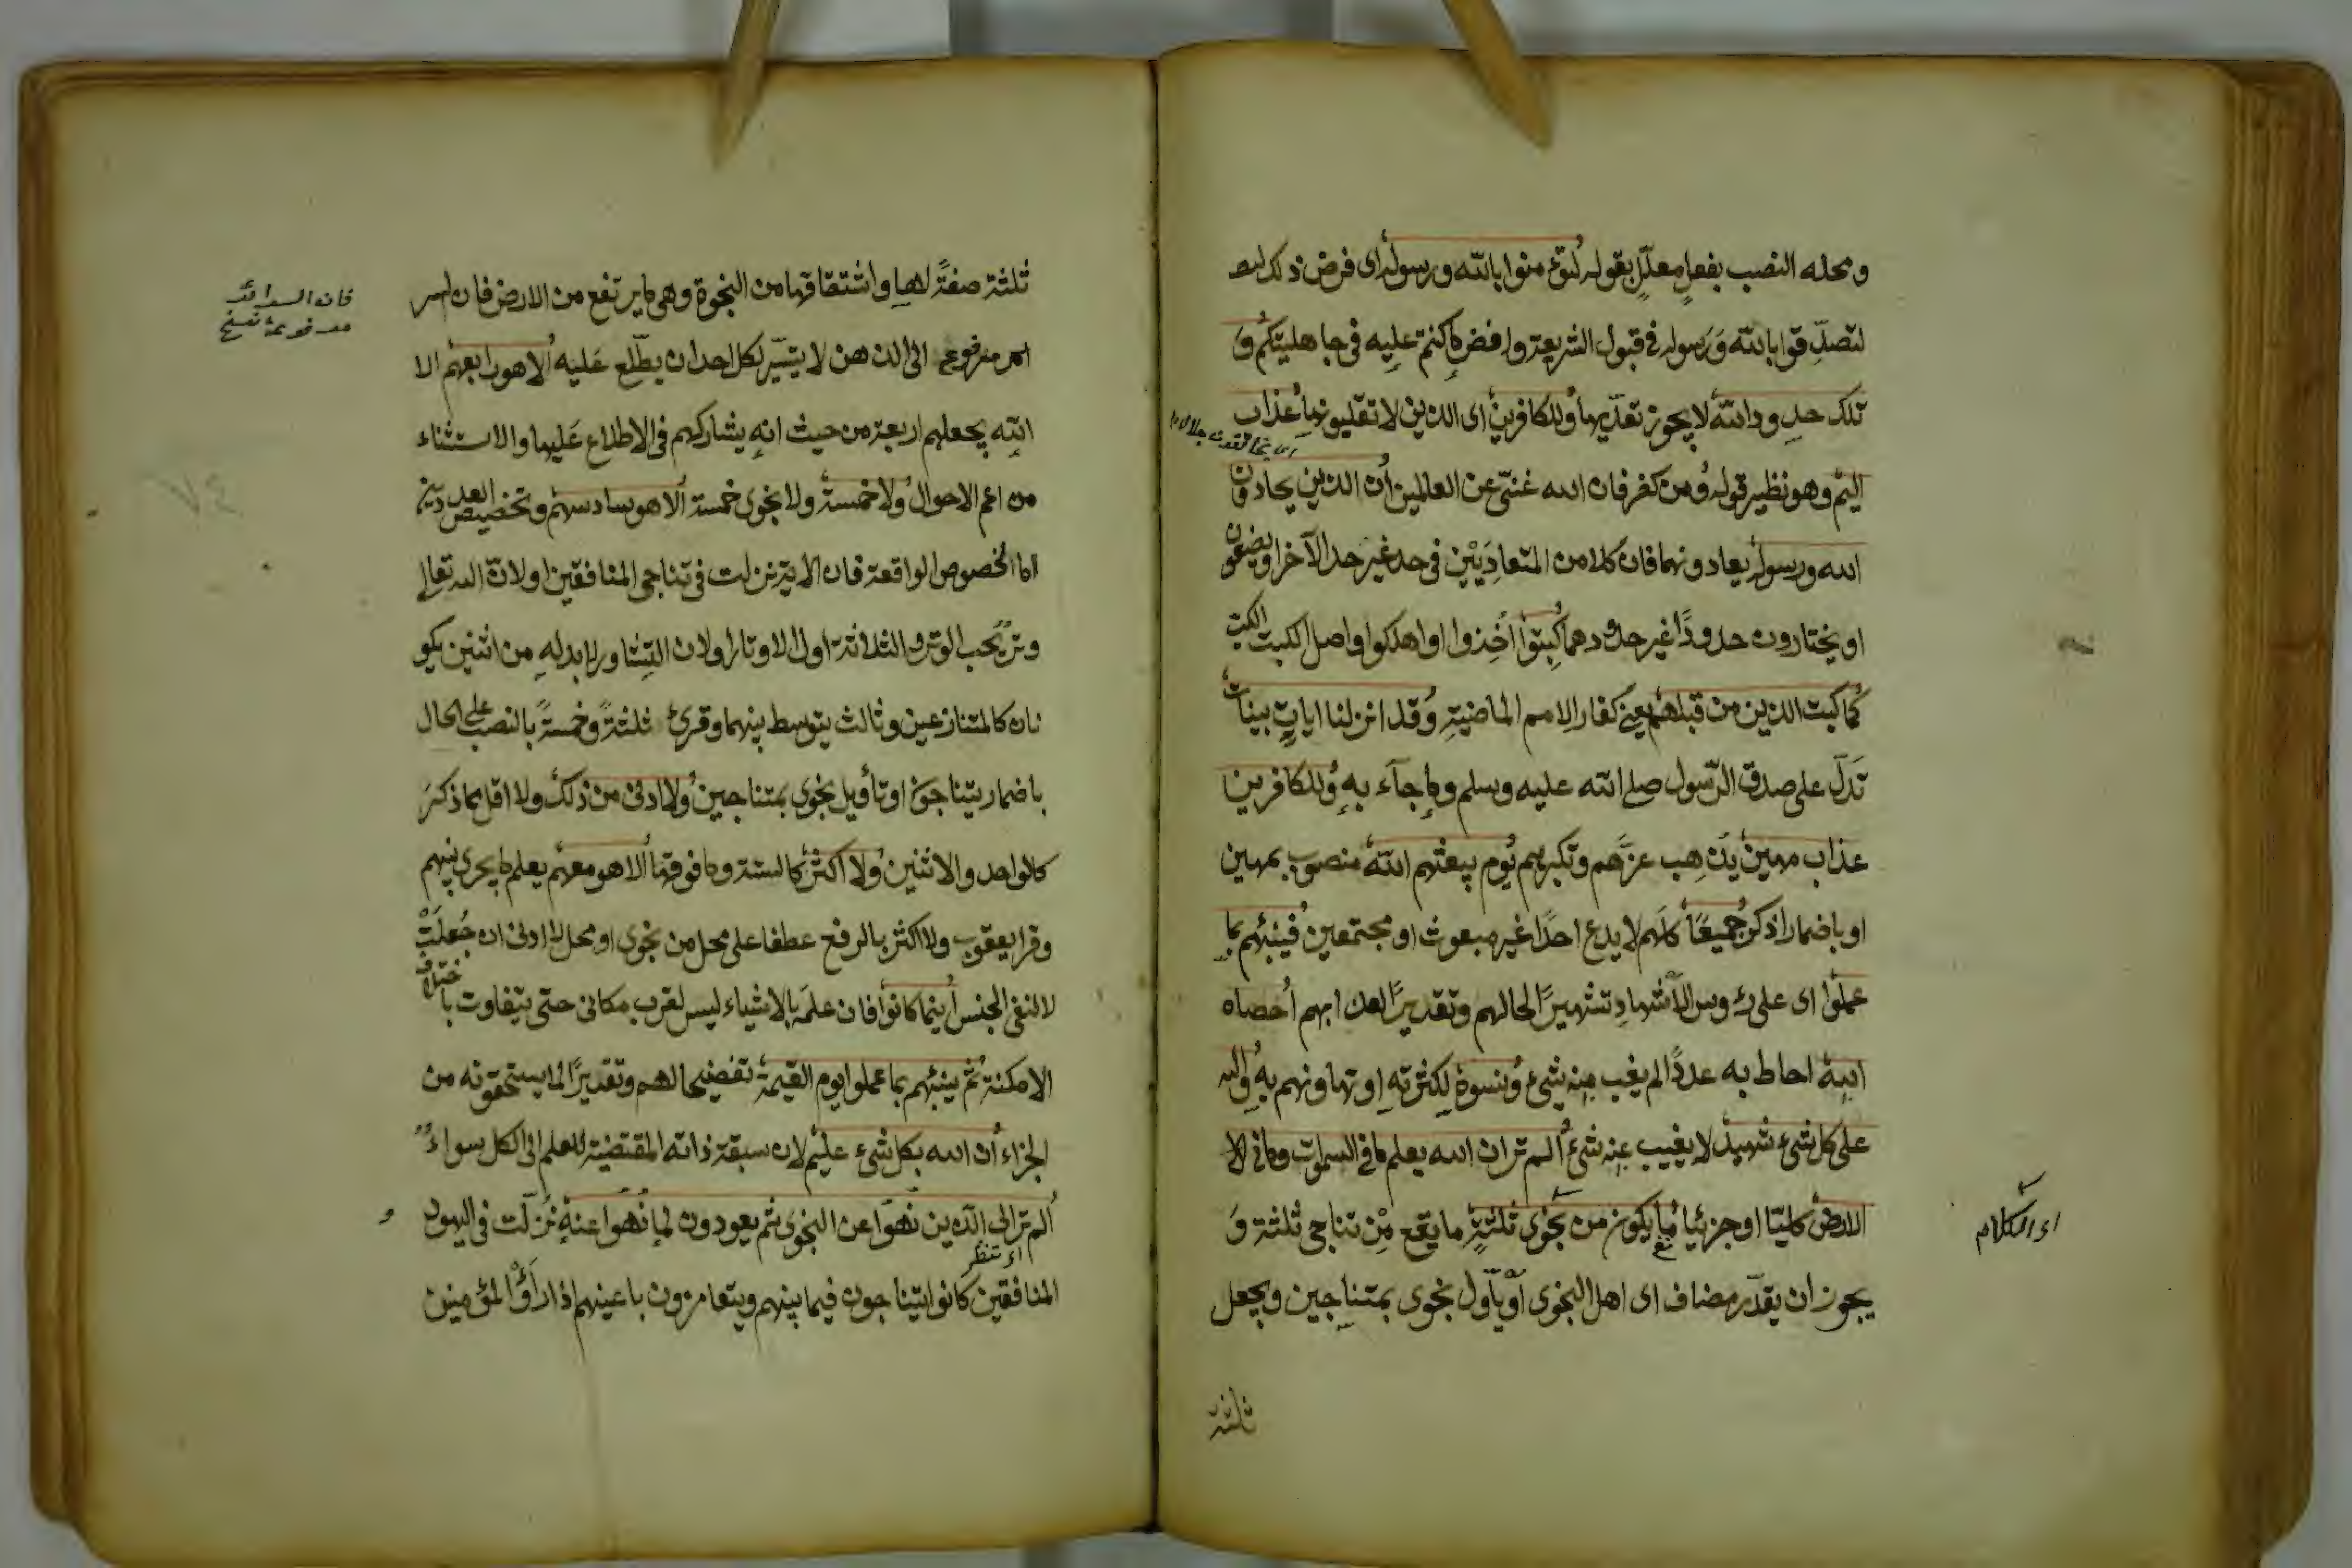 ومحله النصب بفعل معلّل بقوله لتؤمنوا بالله ورسوله اى فرض ذلك
لتصدّقوا بالله وَرَسوله فى قبول الشريعة ورفض ما كنتم عليه فى جاهليتكم وَ
تلك حدود الله لا يجوز تعدّيها وللكافرين اى الذين لا تقليونها عذاب
اليم وهو نظير قوله ومن كفر فان الله غنىّ عن العالمين ان الذين يحادّون
الله ورسوله يعادونهما فان كلا من المتعادِيَيْن فى حد غير حد الآخر او يضعون
او يختارون حدودًا غير حدودهما كُبِتوا اُخِذوا او اهلكوا واصل الكبت الكب
كما كبت الذين من قبلهم يعنى كفار الامم الماضية وَقد انزلنا اياتٍ بينات
تَدلّ على صدق الرّسول صلى الله عليه وسلم وما جآء به وللكافرين
عذاب مهين يذهِب عزّهم وتكبرهم يوم يبعثهم الله منصوب بمهين
او باضمار اذكر جميعًا كلهم لا يدع احدًا غير مبعوث او مجتمعين فينبئهم بما
عملوا اى على رؤوس الاشهادِ تشهيرًا لحالهم وتقديرًا لعذابهم اَحصاه
الله احاط به عددًا لم يغب منه شىء ونسوه لكثرته او تهاونهم به والله
على كل شىء شهيد لا يغيب عنه شىء الم تر ان الله يعلم ما فى السموات وما فى الا
الارض كليّا او جزئيا ما يكون من نجوى ثلثة ما يقع مِنْ تناجى ثلثة وَ
يجوز ان يقدّر مضاف اى اهل النجوى اَو يأَوّل نجوى بمتناجين ويجعل
ثلثة
اى الكلام
ثلثة صفةً لها واشتقاقها من النجوة وهى ما يرتفع من الارض فان السر
امر مرفوع الى الذهن لا يتيسّر لكل احد ان يطّلع عَليه الا هو رابعهم الا
الله يجعلهم اربعة من حيث انه يشاركهم فى الاطلاع عَليها والاستثناء
من اعم الاحوال ولا خمسة ولا نجوى خمسة الا هو سادسهم وتخصيص العددين
اما لخصوص الواقعة فان الاية نزلت فى تناجى المنافقين او لانّ الله تعالى
وتر يُحب الوتر والثلاثة اول الاوتار او لان التشاور لا بد له من اثنين يكو
نان كالمتنازعين وثالث يتوسط بينهما وقرئ ثلثةً وخمسةً بالنصب على الحال
باضمار يتناجون او تأويل نجوى بمتناجين ولا ادنى من ذلك ولا اقل مما ذكر
كالواحد والاثنين ولا اكثر كالستة وما فوقها الا هو معهم يعلم ما يجرى بينهم
وقرا يعقوب ولا اكثر بالرفع عطفا على محل من نجوى او محل لا ادنى ان جُعلَتْ
لا لنفى الجنس اينما كانوا فان علمَه بالاشياء ليس لقرب مكانى حتى يتفاوت باختلاف
الامكنة ثم ينبئهم بما عملوا يوم القيمة تفضيحا لهم وتقديرًا لما يستحقونه من
الجزاء ان الله بكل شىء عليم لان سبقة ذاته المقتضية للعلم الى الكل سواء
الم تر الى الّذين نُهوا عن النجوى ثم يعودون لما نُهُوا عنه نزلت فى اليهود
المنافقين كانوا يتناجون فيما بينهم ويتغامزون باعينهم اذا رَأوْا المؤمنين